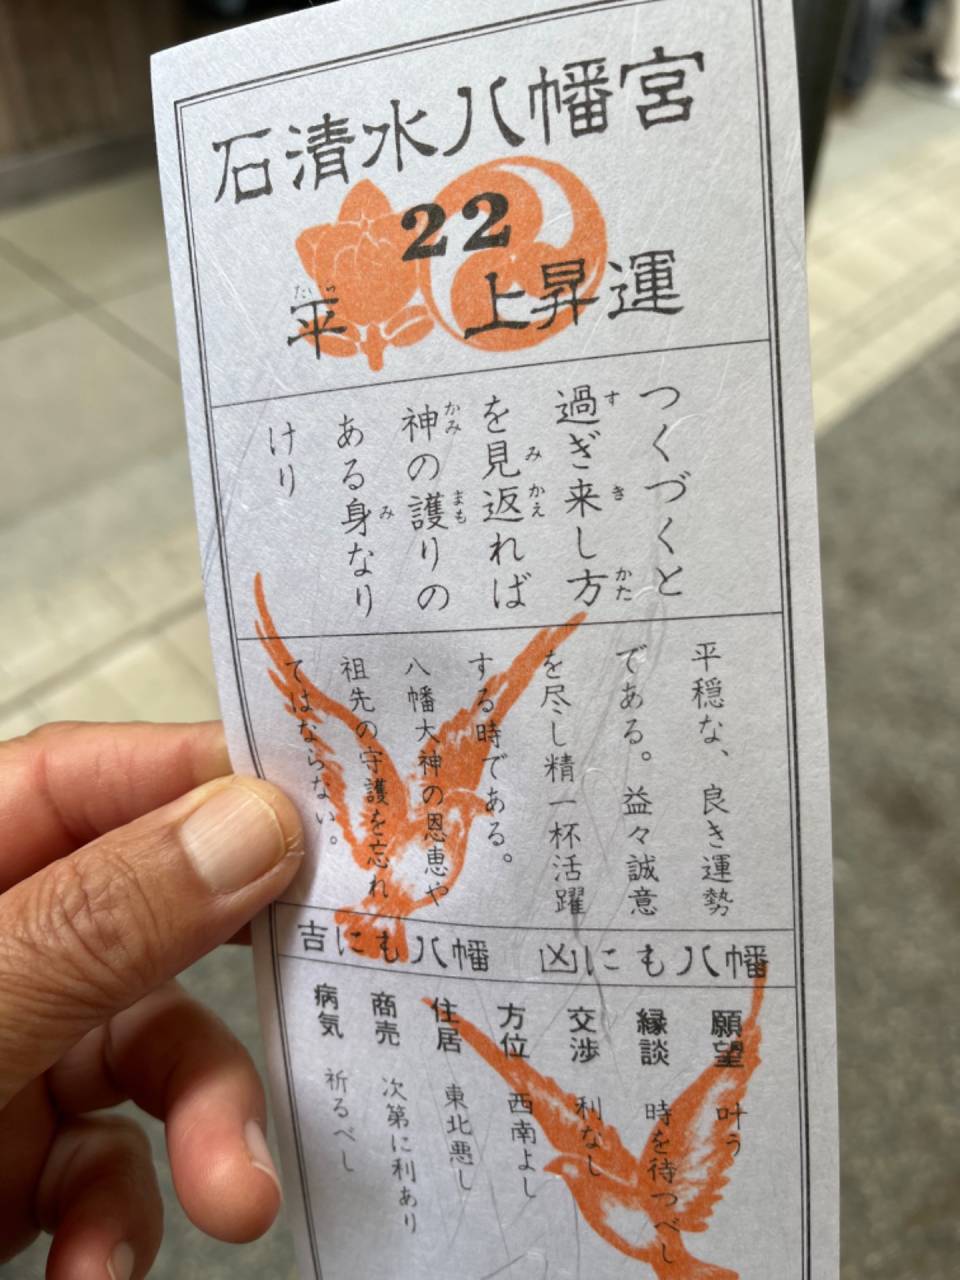 石清水八幡宮
22
平 上昇運
たいら
つくづくと
過ぎ来し方
す き かた
を見返れば
み かえ
神の護りの
かみ まも
ある身なり
み
けり
平穏な、良き運勢
である。益々誠意
を尽し精一杯活躍
する時である。
八幡大神の恩恵や
祖先の守護を忘れ
てはならない。
吉にも八幡 凶にも八幡
願望 叶う
縁談 時を待つべし
交渉 利なし
方位 西南よし
住居 東北悪し
商売 次第に利あり
病気 祈るべし